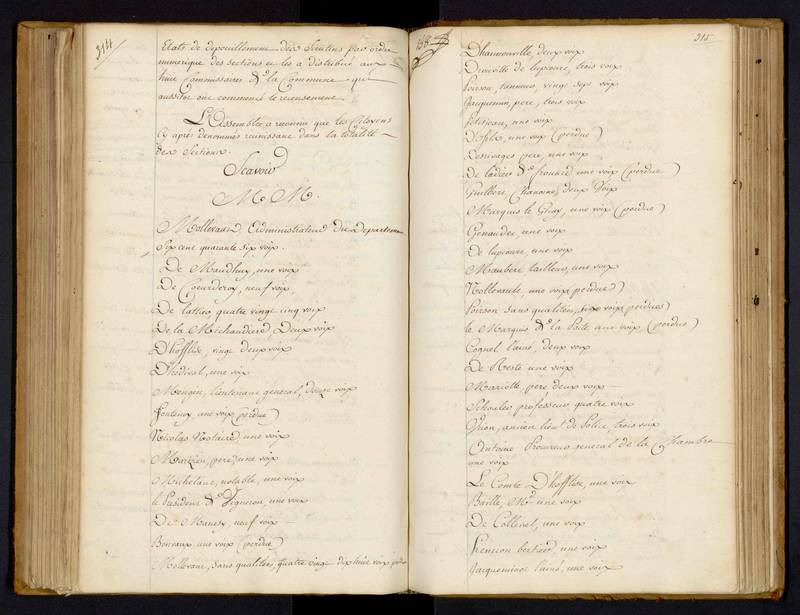 314
Etats de depouillement des Scrutins par ordre
numerique des sections et les a distribué aux
huit Commissaires de la Commune qui
aussitot ont commencé le recensement.
L'Assemblée a reconnu que les Citoyens
cy après denommés reunissant dans la totalité
des Sections.
Scavoir
M.M.
Mollevaut, Administrateur du departement
Sept cent quarante six voix.
De Maudhuy, une voix
De Coeurderoy, neuf voix,
De lattier, quatre vingt cinq voix
De la Michaudiere Deux voix
Dhofflise, vingt deux voix
une voix
Mengin, lieutenant général, Douze voix
Fontenoy une voix (perdue)
Nicolas Notaire, une voix
pere, une voix
notable, une voix
le Président de Vigneron, une voix
De neuf voix
Bonvaux, une voix (perdue)
Mollevaut, sans qualités, quatre vingt dix huit voix
158
315
deux voix
de lupcourt, trois voix
Poirson, tanneur, vingt sept voix
Jacquemin, pere, trois voix
Petitjean, une voix
une voix (perdue)
Desrivages pere, une voix
De ladre de frouard une voix (perdue)
Guilbert, Chanoine, deux Voix
Marquis le une voix (perdue)
Genaudet, une voix
De lupcourt, une voix
Maubert tailleur, une voix
Nollevault, une voix (perdue)
Poirson sans qualités, voix (perdues)
le Marquis de la Poite une voix (perdue)
Cognel l'ainé, deux voix
De Reste une voix
Mariotte, pere deux voix
professeur, quatre voix
ancien lieut. de Police, trois voix
Antoine Procureur general de la Chambre
une voix
Le Comte D'hofflise, une voix
Baille, Md une voix
De Collenel, une voix
bertier, une voix
Jacqueminot l'ainé, une voix